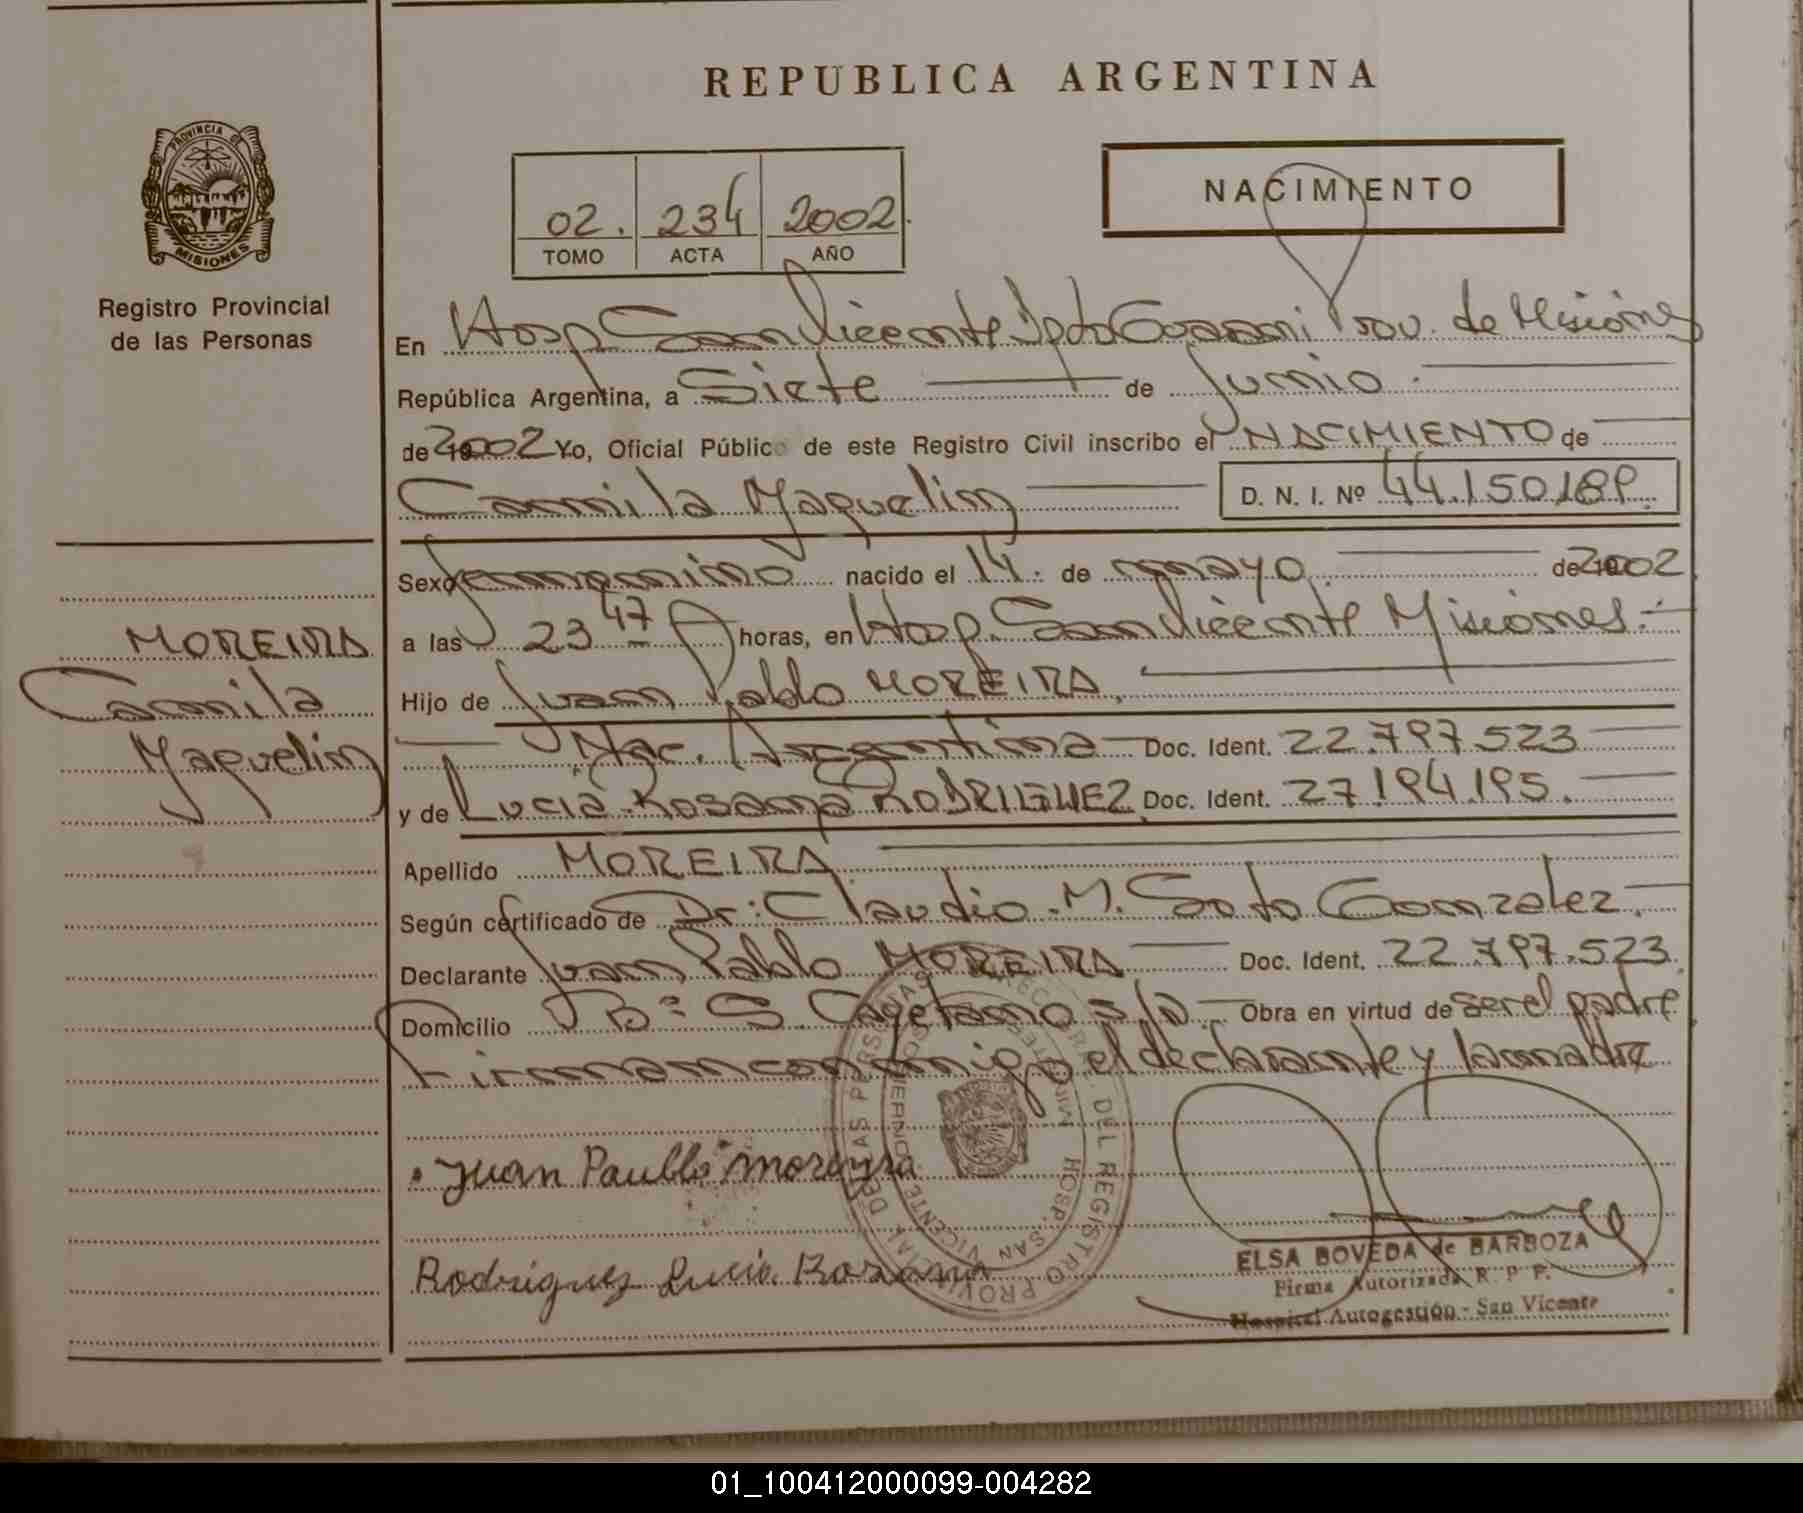 REPUBLICA ARGENTINA
PROVINCIA DE
MISIONES
Registro Provincial
de las Personas
02. 234 2002.
TOMO ACTA AÑO
NACIMIENTO
En Hosp San Vicente Dpto Guarani Prov. de Misiones
República Argentina, a Siete de Junio.
de 2002 Yo, Oficial Público de este Registro Civil inscribo el NACIMIENTO de
Camila Yaquelin D. N. I. Nº 44.150.189.
Sexo femenino nacido el 14. de mayo. de 2002.
a las 23 47 horas, en Hosp. San Vicente Misiones.
Hijo de Juan Pablo MOREIRA,
Nac. Argentina Doc. Ident. 22.797.523
y de Lucia Rosana RODRIGUEZ, Doc. Ident. 27.194.195.
Apellido MOREIRA
Según certificado de Dr: Claudio. M. Soto Gonzalez.
Declarante Juan Pablo MOREIRA Doc. Ident. 22.797.523.
Domicilio Bº S. Cayetano s/n. Obra en virtud de ser el padre
Firman conmigo el declarante y la madre
MOREIRA
Camila
Yaquelin
Juan Paubló moreyra
Rodriguez Lucia Rosana
PROVINCIAL DE LAS PERSONAS
DEL REGISTRO
HOSP. SAN VICENTE
ELSA BOVEDA de BARBOZA
Firma Autorizada R. P. P.
Hospital Autogestión - San Vicente
01_100412000099-004282